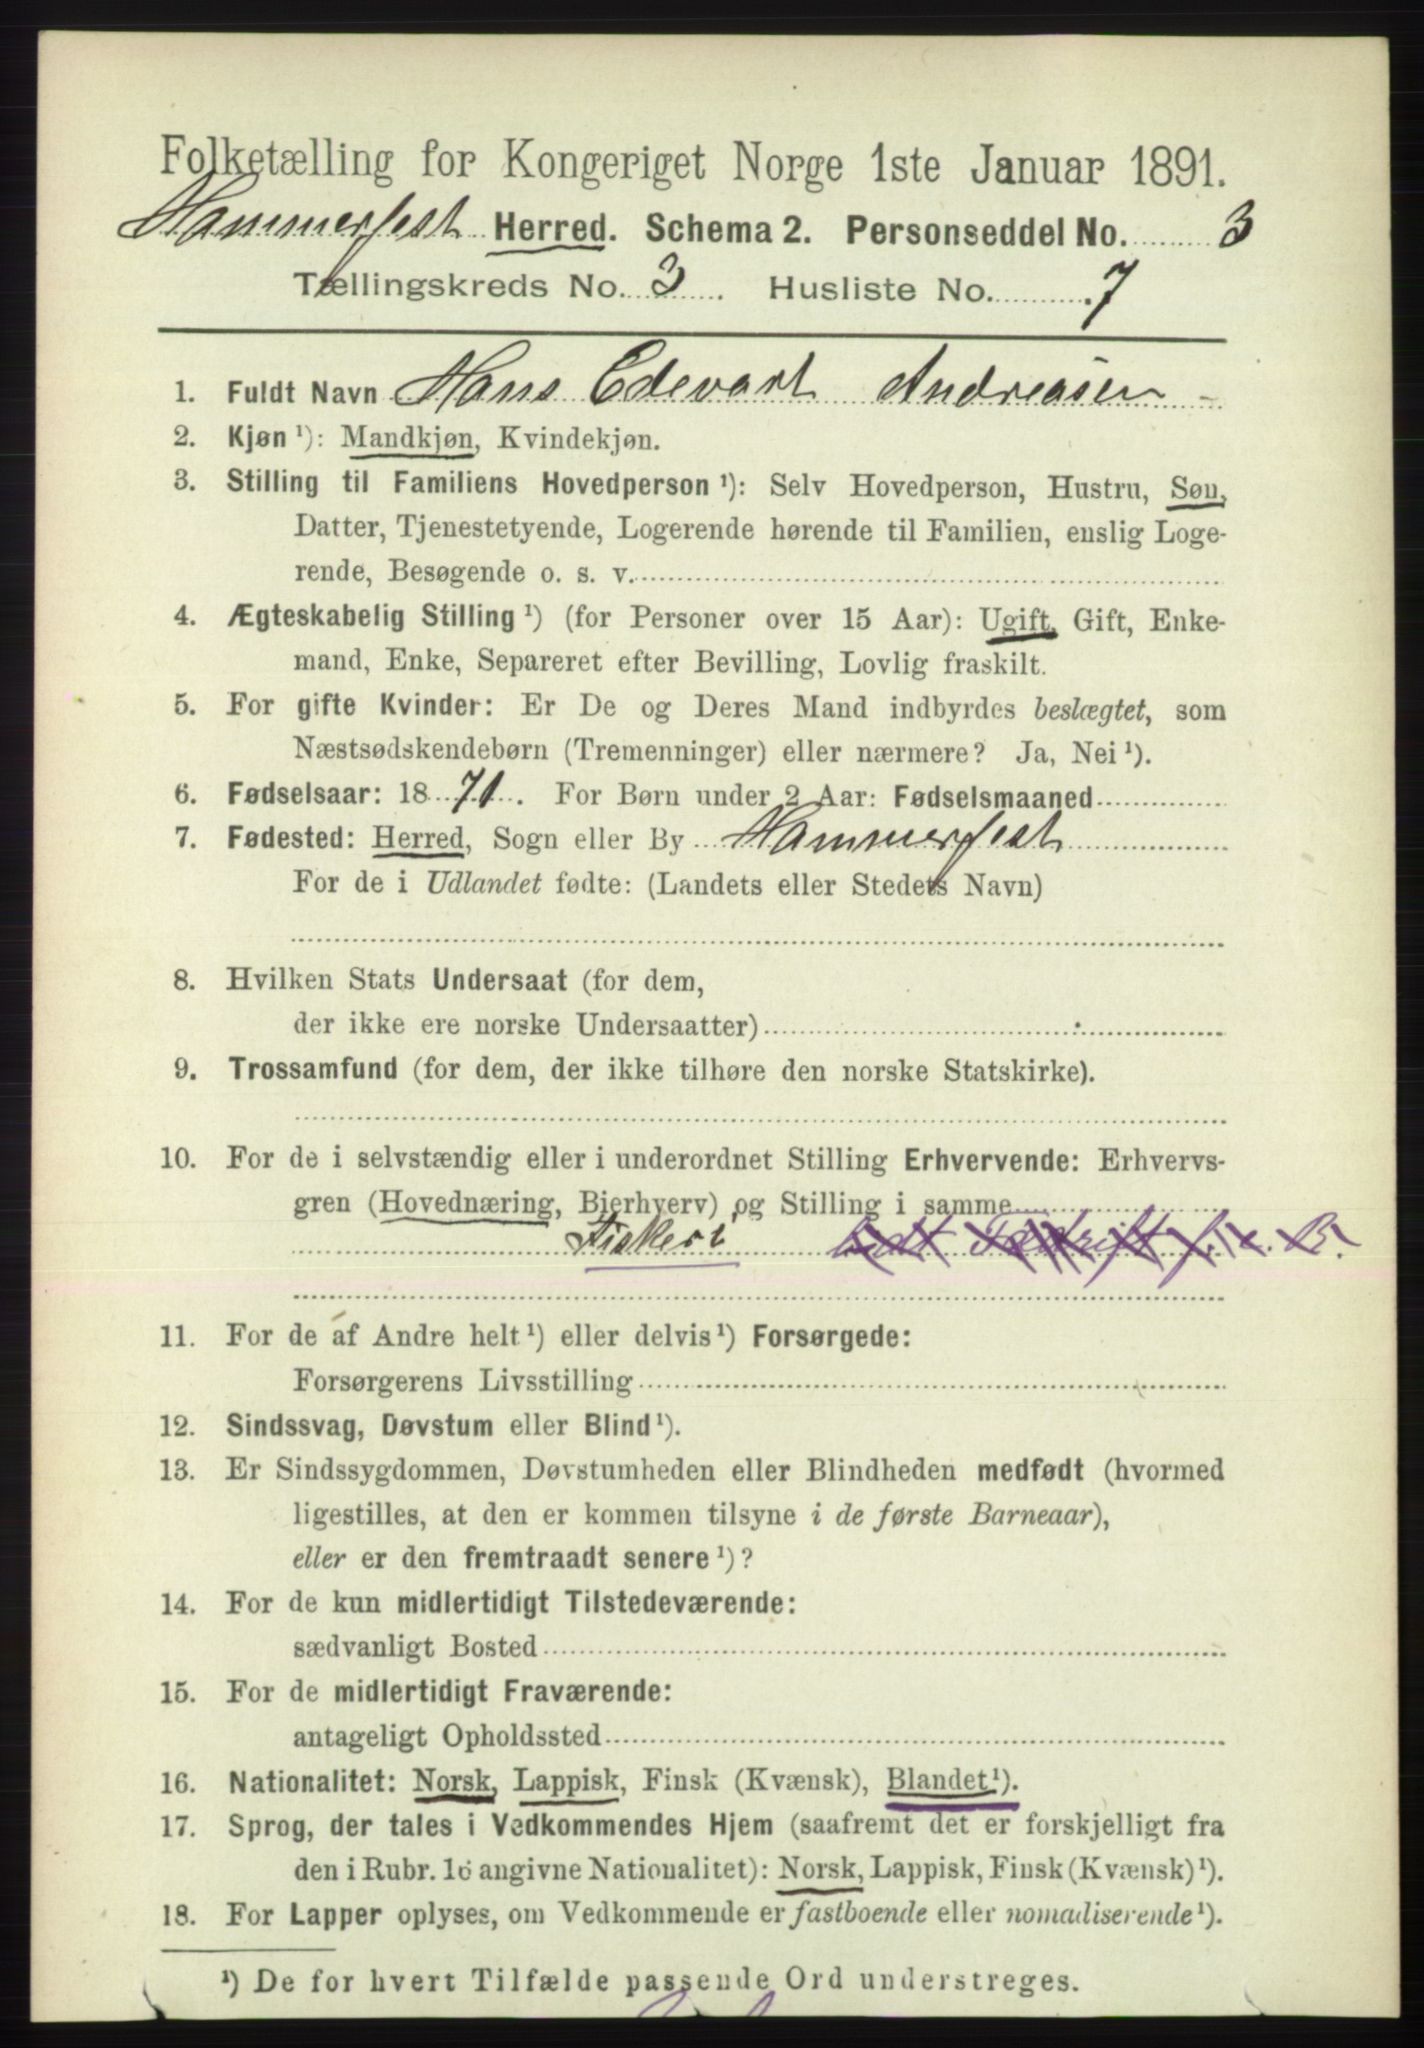 Folketælling for Kongeriget Norge 1ste Januar 1891.
Hammerfest Herred. Schema 2. Personseddel No. 3
Tællingskreds No. 3. Husliste No. 7
1. Fuldt Navn Hans Edevart Andreasen
2. Kjøn ¹): Mandkjøn, Kvindekjøn.
3. Stilling til Familiens Hovedperson ¹): Selv Hovedperson, Hustru, Søn,
Datter, Tjenestetyende, Logerende hørende til Familien, enslig Loge-
rende, Besøgende o. s. v.
4. Ægteskabelig Stilling ¹) (for Personer over 15 Aar): Ugift, Gift, Enke-
mand, Enke, Separeret efter Bevilling, Lovlig fraskilt.
5. For gifte Kvinder: Er De og Deres Mand indbyrdes beslægtet, som
Næstsødskendebørn (Tremenninger) eller nærmere? Ja, Nei ¹).
6. Fødselsaar: 1871. For Børn under 2 Aar: Fødselsmaaned
7. Fødested: Herred, Sogn eller By Hammerfest
For de i Udlandet fødte: (Landets eller Stedets Navn)
8. Hvilken Stats Undersaat (for dem,
der ikke ere norske Undersaatter)
9. Trossamfund (for dem, der ikke tilhøre den norske Statskirke).
10. For de i selvstændig eller i underordnet Stilling Erhvervende: Erhvervs-
gren (Hovednæring, Bierhverv) og Stilling i samme
Fiskeri
11. For de af Andre helt ¹) eller delvis ¹) Forsørgede:
Forsørgerens Livsstilling
12. Sindssvag, Døvstum eller Blind ¹).
13. Er Sindssygdommen, Døvstumheden eller Blindheden medfødt (hvormed
ligestilles, at den er kommen tilsyne i de første Barneaar),
eller er den fremtraadt senere ¹)?
14. For de kun midlertidigt Tilstedeværende:
sædvanligt Bosted
15. For de midlertidigt Fraværende:
antageligt Opholdssted
16. Nationalitet: Norsk, Lappisk, Finsk (Kvænsk), Blandet ¹).
17. Sprog, der tales i Vedkommendes Hjem (saafremt det er forskjelligt fra
den i Rubr. 16 angivne Nationalitet): Norsk, Lappisk, Finsk (Kvænsk) ¹).
18. For Lapper oplyses, om Vedkommende er fastboende eller nomadiserende ¹).
¹) De for hvert Tilfælde passende Ord understreges.